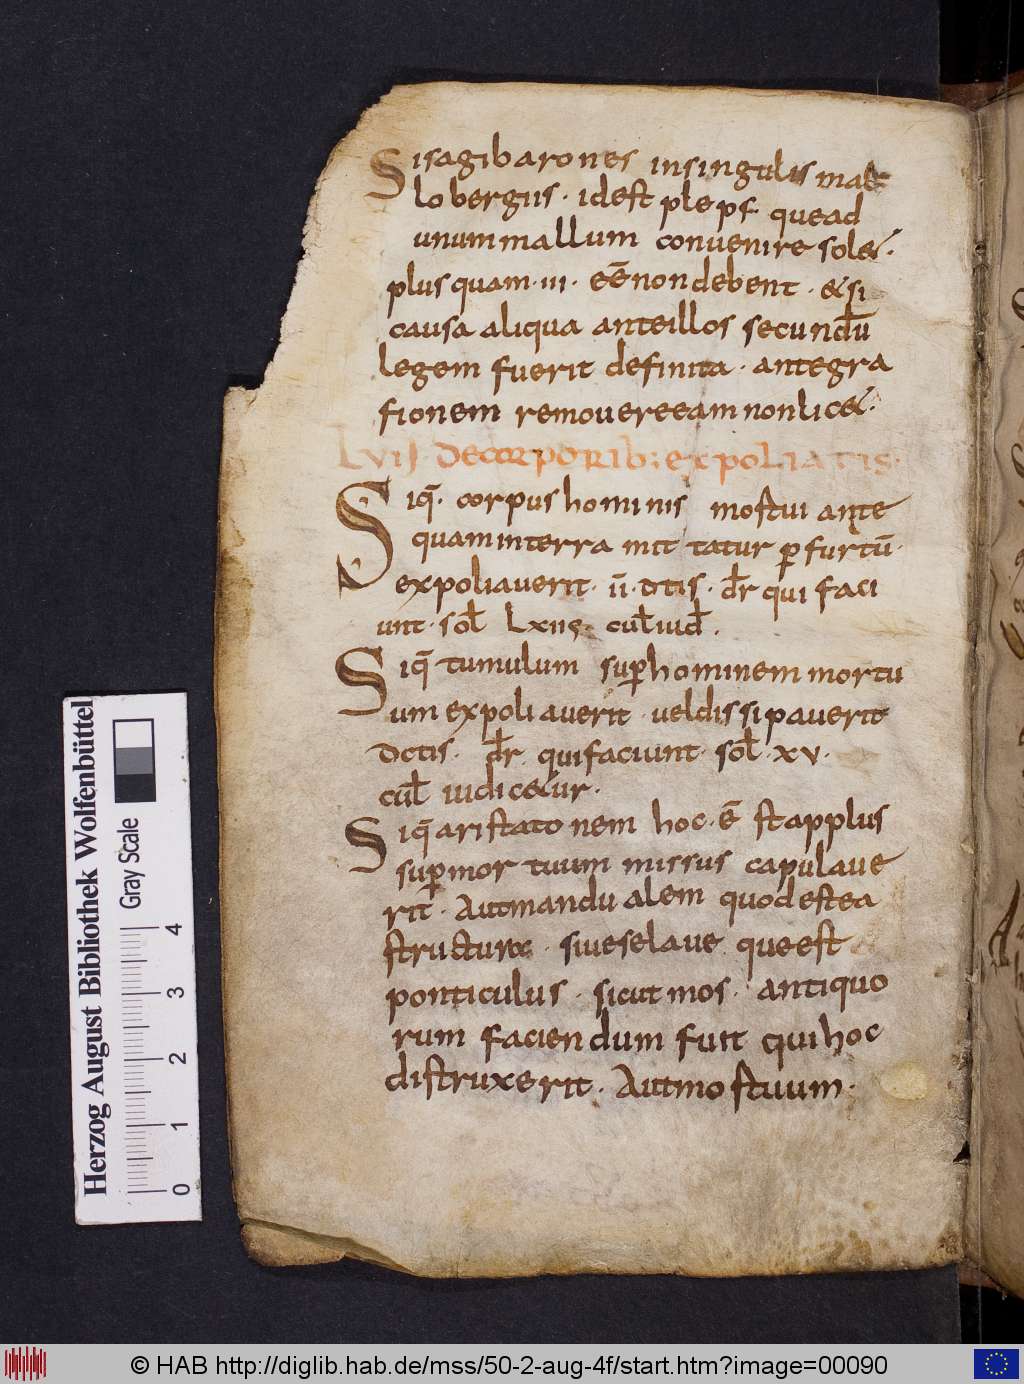 Sisagibarones insingulis mal
lobergiis · idest pleps quead
unum mallum convenire solet ·
plus quam · iii · eē non debent · & si
causa aliqua ante illos secundū
legem fuerit definita · antegra
fionem removere eam non licet ·
LVII decorporib; expoliatis ·
Siq̄ · corpus hominis mostui ante
quam in terra mittatur p̱ furtū ·
expoliaverit · ii̅ · dtis · dr̄ qui faci
unt · sol̄ Lxiis · cul̄ iud̄ ·
Siq̄ tumulum sup̱ hominem mortu
um expoliaverit · vel dissipaverit
dctis · dr̄ qui faciunt · sol̄ · xv ·
cul̄ iudicetur ·
Siq̄ aristatonem hoc · ē stapplus
sup̱ mortuum missus capulave
rit · Aut mandualem quod est ea
structura · sive selave que est
ponticulus · sicut mos · antiquo
rum faciendum fuit qui hoc
distruxerit · Aut mostuum ·
Herzog August Bibliothek Wolfenbüttel
Gray Scale
0 1 2 3 4
© HAB http://diglib.hab.de/mss/50-2-aug-4f/start.htm?image=00090